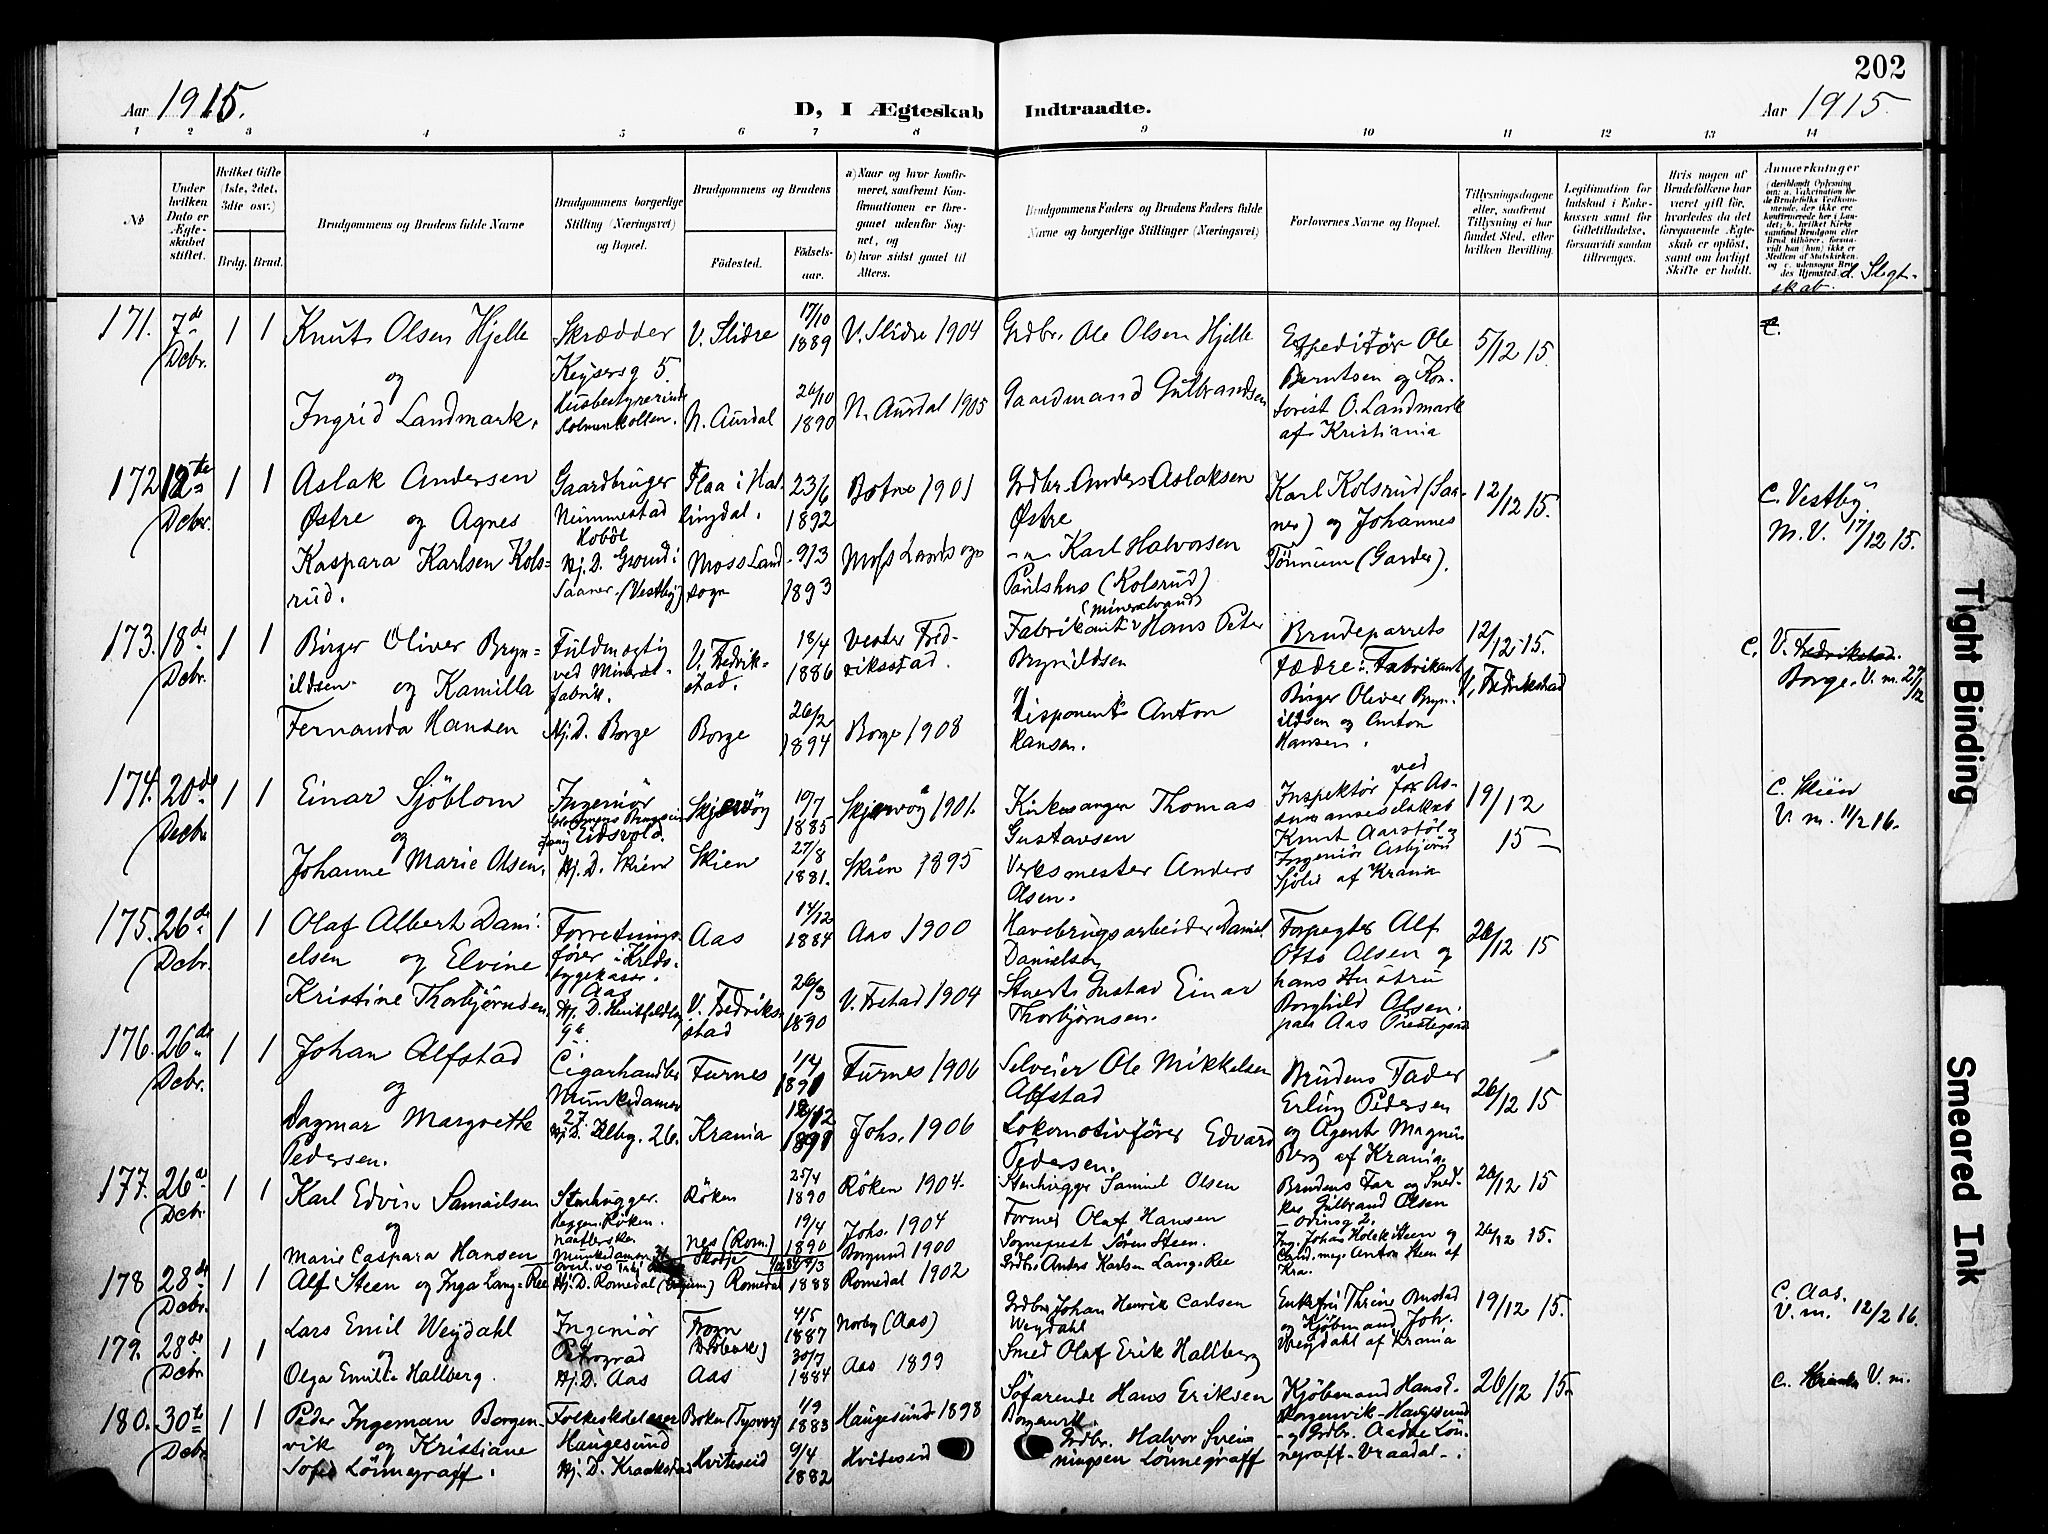 202
Aar 1915.
D, I Ægteskab Indtraadte.
Aar 1915.
1 2 3 4 5 6 7 8 9 10 11 12 13 14
No
Under hvilken Dato er Ægteskabet stiftet.
Hvilket Gifte (1ste, 2det, 3dte osv.)
Brdg. Brud.
Brudgommens og Brudens fulde Navne
Brudgommens borgerlige Stilling (Næringsvei) og Bopæl.
Brudgommens og Brudens
Fødested.
Fødselsaar.
a) Naar og hvor konfirmeret, saafremt Konfirmationen er foregaaet udenfor Sognet, og
b) hvor sidst gaaet til Alters.
Brudgommens Faders og Brudens Faders fulde Navne og borgerlige Stillinger (Næringsvei)
Forlovernes Navne og Bopæl.
Tillysningsdagene eller, saafremt Tillysning ei har fundet Sted, efter hvilken Bevilling.
Legitimation for Indskud i Enkekassen samt for Giftetilladelse, forsaavidt saadan tiltrænges.
Hvis nogen af Brudefolkene har været gift før, hvorledes da det foregaaende Ægteskab er opløst, samt om lovligt Skifte er holdt.
Anmerkninger
d. Slegtskab.
171. 7de Dcbr. 1 1
Knut Olsen Hjelle
og
Ingrid Landmark.
Skrædder
Keysersg 5.
Husbestyrerinde
Holmenkollen.
V. Slidre
N. Aurdal
17/10 1889
26/10 1890
V. Slidre 1904
N. Aurdal 1905
Grdbr. Ole Olsen Hjelle
Gaardmand Gulbrandsen
Expeditør Ole
Berntsen og Kontorist O. Landmark
af Kristiania
5/12 15.
172 12te Dcbr. 1 1
Aslak Andersen
Østre og Agnes
Kaspara Karlsen Kolsrud.
Gaardbruger
Nummestad
Hobøl
Hj. D. Grund i
Saaner. (Vestby)
Flaa i Hallingdal.
Moss Landsogn
23/6 1892
9/3 1893
Botne 1901
Moss Landsogn
Grdbr. Anders Aslaksen
Østre
-"- Karl Halvorsen
Paulshus (Kolsrud)
Karl Kolsrud (Saaner) og Johannes
Tønnum (Garder).
12/12 15.
C. Vestby.
M. V. 17/12 15.
173. 18de Dcbr. 1 1
Birger Oliver Brynildsen og Kamilla
Fernanda Hansen
Fuldmægtig
ved Mineralfabrik.
Hj. D. Borge
V. Fredrikstad.
Borge
18/4 1886
26/2 1894
Vester Fredriksstad.
Borge 1908
Fabrikant (mineralvand) Hans Peter
Brynildsen
Disponent Anton
Hansen.
Brudeparrets
Fædre: Fabrikant
Birger Oliver Brynildsen og Anton
Hansen.
12/12 15.
V. Fredrikstad
C. V. Fredrikstad.
Borge. V. m. 27/12
174. 20de Decbr. 1 1
Einar Sjöblom
og
Johanne Marie Olsen.
Ingeniør
Eidsvold.
Hj. D. Skien
Skjervøy
Skien
19/7 1885
27/8 1881.
Skjervøy 1901.
Skien 1895
Kirkesanger Thomas
Gustavsen
Verksmester Anders
Olsen.
Inspektør ved Assuranceselskab
Knut Aarstøl
Ingeniør Asbjørn
Sjölie af Krania
19/12
15
C. Skien
V. m. 11/2 16.
175. 26de Dcbr. 1 1
Olaf Albert Danielsen og Elvine
Kristine Thorbjørnsen
Forretningsfører i Kredssygekassen.
Aas
Hj. D. Huitfeldtsg
Aas
V. Fredrikstad
14/12 1884
26/3 1890
Aas 1900
V. Frstad 1904
Havebrugsarbeider Daniel
Danielsen
Stuert Gustav Einar
Thorbjørnsen.
Forpagter Alf
Otto Olsen og
hans Hustru
Borghild Olsen.
paa Aas Prestegaard
26/12 15
176. 26de Dcbr. 1 1
Johan Alfstad
og
Dagmar Margrethe
Pedersen.
Cigarhandler
Munkedamsv
27.
Hj. D. Elbg. 26.
Furnes
Krania
1/4 1891
1891
Furnes 1906
Johs. 1906
Selveier Ole Mikkelsen
Alfstad
Lokomotivfører Edvard
Pedersen.
Brudens Fader
Erling Pedersen
og Agent Magnus
Berg af Krania.
26/12 15
177. 26de Dcbr 1 1
Karl Edvin Samuelsen
og
Marie Caspara Hansen
Stenhugger.
Heggen. Røken.
Munkedamsv
Røken
Nes (Rom.)
25/4 1890
19/4 1890
Røken 1904.
Johs. 1904
Stenhugger Samuel Olsen
Former Olaf Hansen
Brudens Far og Snedker Gulbrand Olsen
Odinsg 2.
26/12 15
178 28de Dcbr. 1 1
Alf Steen og Inga Lang-Ree
Hj. D. Romedal
Skodje
Romedal
1888
Borgund 1900
Romedal 1902
Sogneprest Søren Steen.
Grdbr. Anders Karlsen Lang-Ree
Ing. Johan Holck Steen og
Cand. mag. Anton Steen af
Kra.
26/12 15.
179. 28de Dcbr. 1 1
Lars Emil Weydahl
og
Olga Emilie Hallberg.
Ingeniør
Petrograd
Hj. D. Aas
Frogn
Aas
4/5 1887
30/7 1884
Norby (Aas)
Aas 1899
Grdbr. Johan Henrik Carlsen
Weydahl
Smed Olaf Erik Hallberg
Enkefru Thrine Onstad
og Kjøbmand Joh.
Weydahl af Krania
19/12 15.
C. Aas.
V. m. 12/2 16.
180. 30te Dcbr. 1 1
Peder Ingeman Borgenvik og Kristiane
Sofie Lönnegraff.
Folkeskolelærer
Haugesund
Hj. D. Kraakstad
Boken (Tysvær)
Hviteseid
1883
9/4 1882
Haugesund 1898
Hviteseid
Søfarende Hans Eriksen
Borgenvik.
Grdbr. Halvor Sveinungsen Lönnegraff
Kjøbmand Hans E.
Borgenvik - Haugesund
og Grdbr. Aadne Lönnegraff - Vraadal.
26/12 15.
C. V. m.
Tight Binding
Smeared Ink